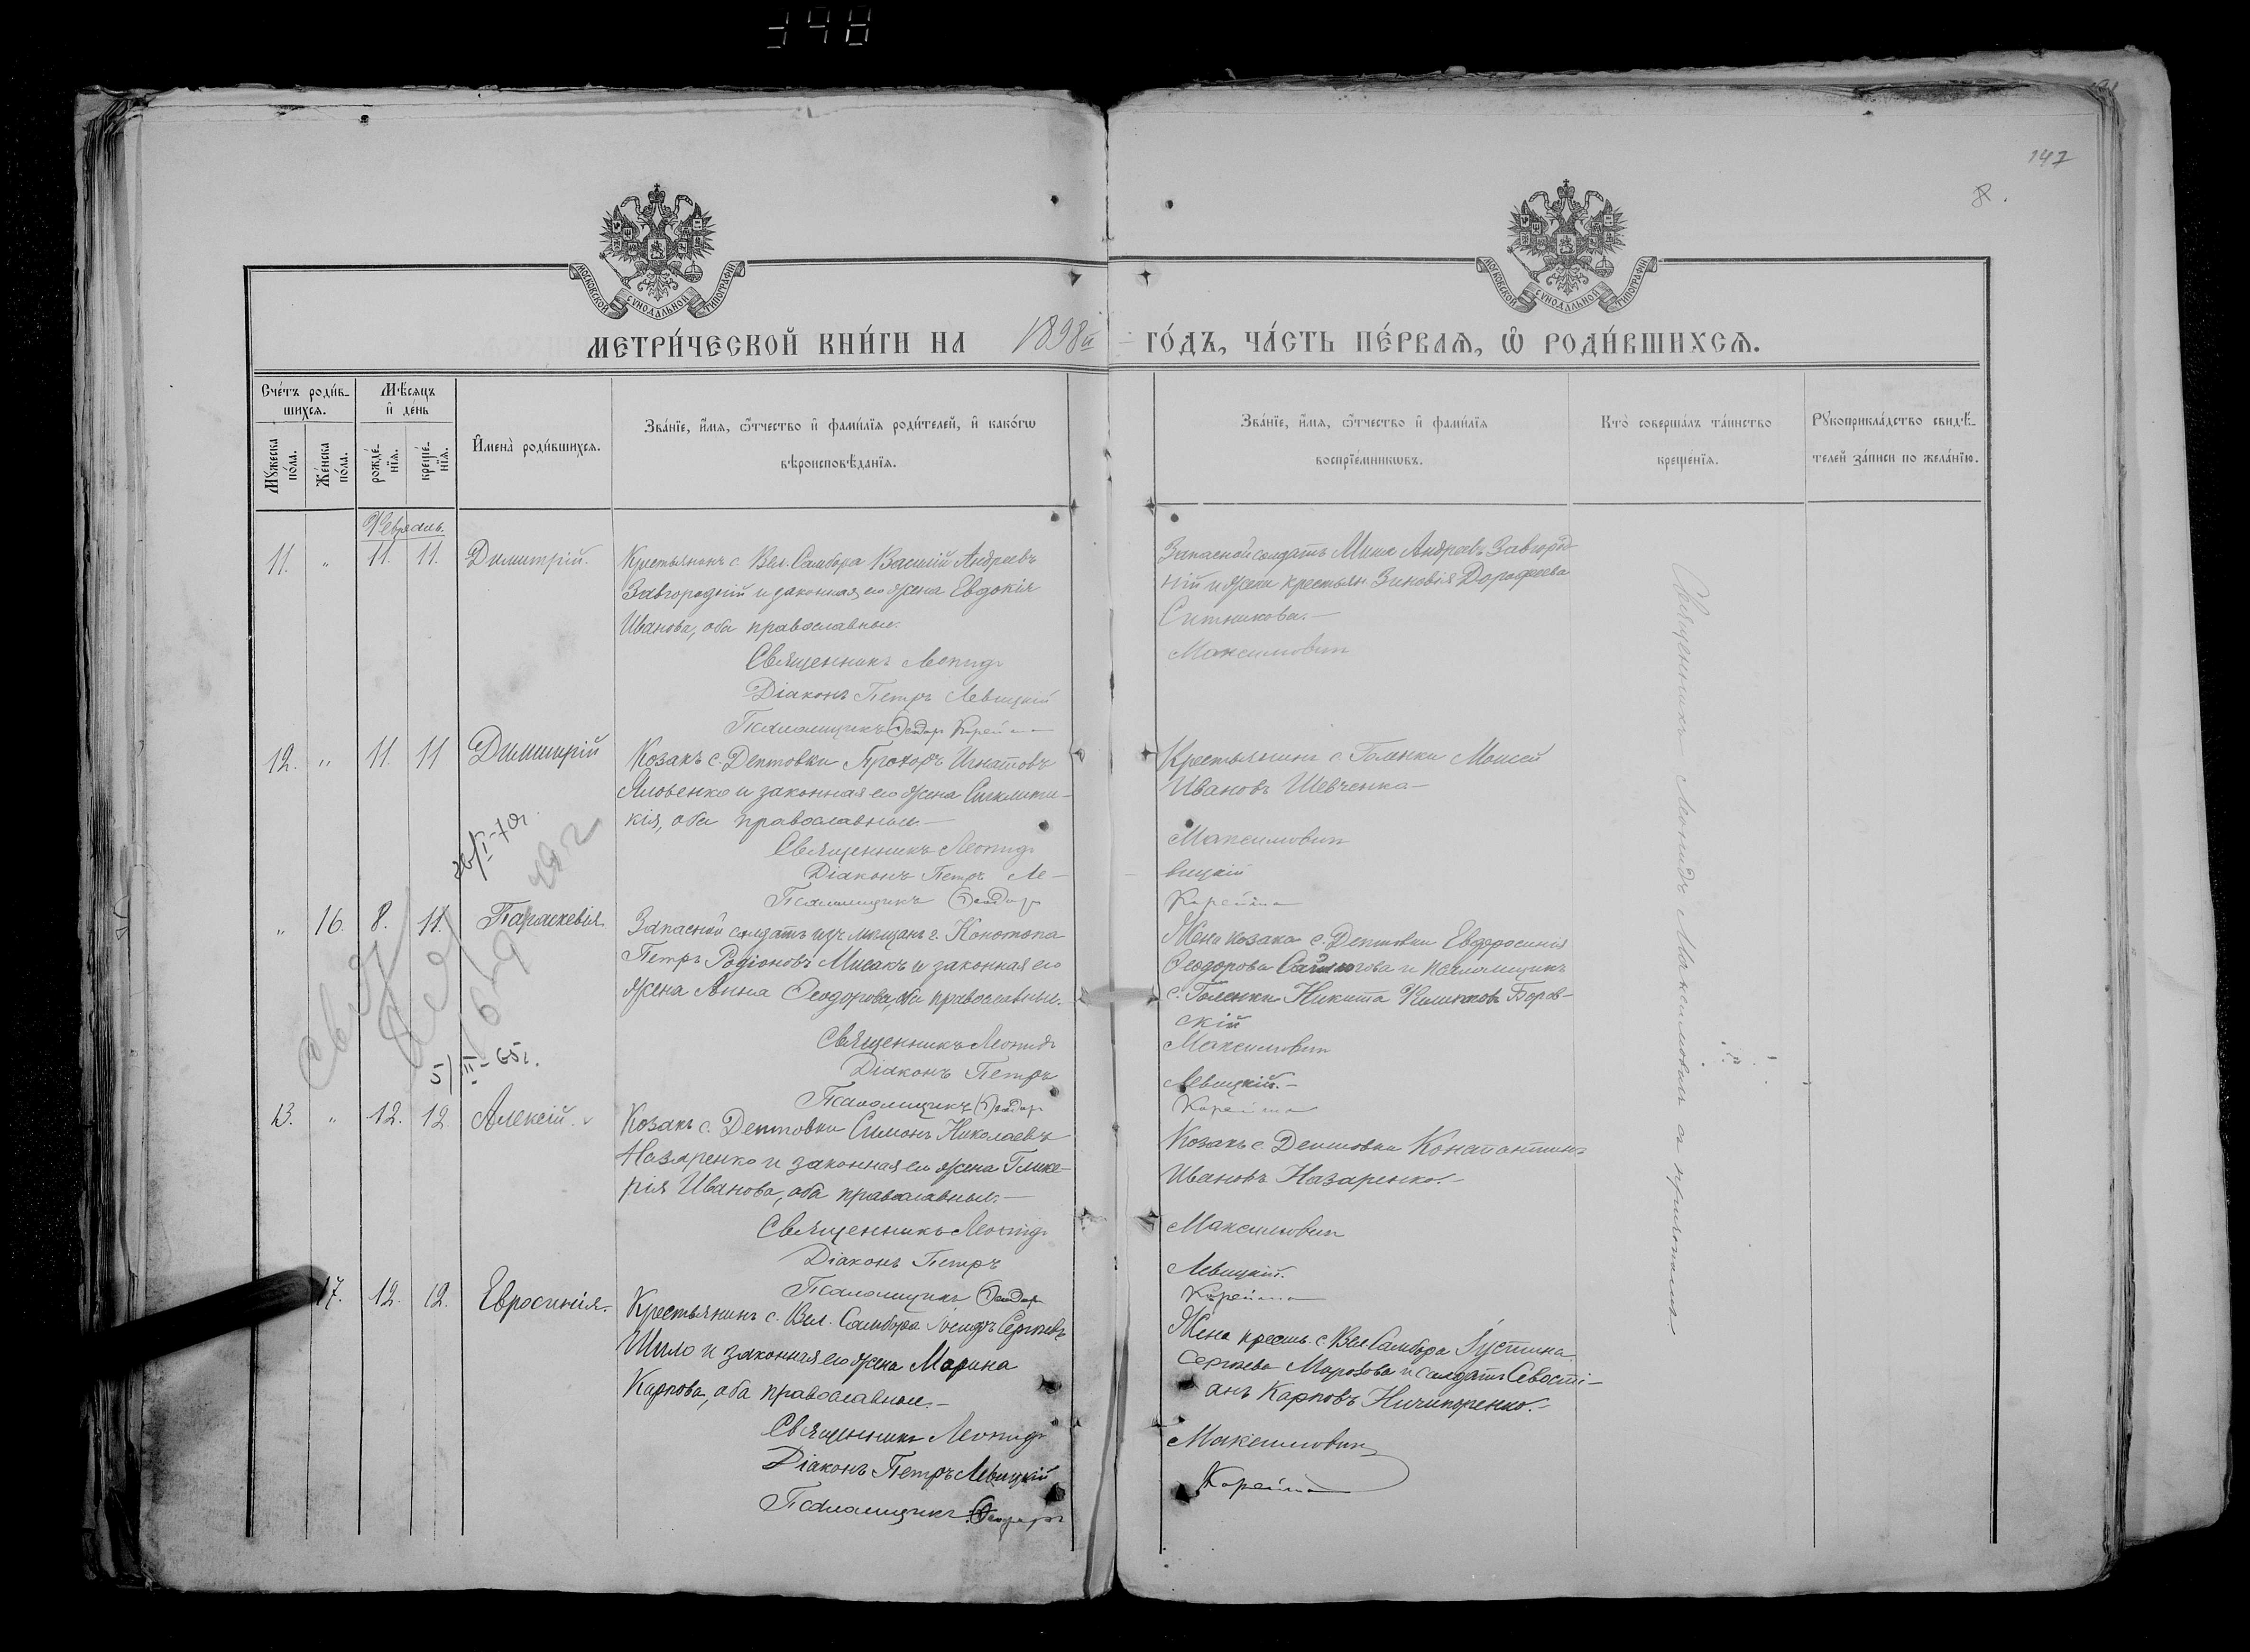 348
147
8.
МОСКОВСКОЙ СѴНОДАЛЬНОЙ ТИПОГРАФІИ
МОСКОВСКОЙ СѴНОДАЛЬНОЙ ТИПОГРАФІИ
МЕТРИ́ЧЕСКОЙ КНИ́ГИ НА 1898й ГО́ДЪ, ЧА́СТЬ ПЕ́РВАѦ, Ѡ҆ РОДИ́ВШИХСѦ.
Сче́тъ роди́в-
шихсѧ.
Мꙋ́жеска по́ла.
Же́нска по́ла.
Мѣ́сѧцъ
и҆ де́нь
рожде́-нїѧ.
креще́-нїѧ.
И҆мена̀ роди́вшихсѧ.
Зва́нїе, и҆́мѧ, ѻ҆́тчество и҆ фами́лїѧ роди́телей, и҆ како́гѡ
вѣроисповѣ́данїѧ.
Зва́нїе, и҆́мѧ, ѻ҆́тчество и҆ фами́лїѧ
воспрїе́мникѡвъ.
Кто̀ соверша́лъ та́инство
креще́нїѧ.
Рꙋкоприкла́дство свидѣ́-
телей за́писи по жела́нїю.
Февраль.
11. " 11. 11. Димитрій.
Крестьянинъ с. Вел. Самбора Василій Андреевъ
Завгородній и законная его жена Евдокія
Иванова, оба православные.
Священникъ Леонидъ
Діаконъ Петръ Левицкій
Псаломщикъ Ѳеодоръ
Запасной солдатъ Андреевъ Завгород-
ній и жена крестьян. Зиновія Дорофеева
Ситникова.-
Максимовичъ
12. " 11. 11 Димитрій
Козакъ с. Дептовки Прохоръ Игнатовъ
Яловенко и законная его жена Синклити-
кія, оба православные-
Священникъ Леонидъ
Діаконъ Петръ Ле-
Псаломщикъ Ѳеодоръ
Крестьянинъ с. Голенки Моисей
Ивановъ Шевченко-
Максимовичъ
вицкій
26/I-70г.
" 16. 8. 11. Параскевія.
Запасной солдатъ изъ мещанъ г. Конотопа
Петръ Родіоновъ Мисакъ и законная его
жена Анна Ѳеодорова, оба православные.
Священникъ Леонидъ
Діаконъ Петръ
Псаломщикъ Ѳеодоръ
Жена козака с. Дептовки Евфросинія
Ѳеодорова и псаломщикъ
с. Голенки Никита Боров-
скій
Максимовичъ
Левицкій.-
5/II-65г.
13. " 12. 12. Алексій.
Козакъ с. Дептовки Симонъ Николаевъ
Назаренко и законная его жена Глике-
рія Иванова, оба православные.-
Священникъ Леонидъ
Діаконъ Петръ
Псаломщикъ Ѳеодоръ
Козакъ с. Дептовки Константинъ
Ивановъ Назаренко.-
Максимовичъ
Левицкій.
17. 12. 12. Евросинія.
Крестьянинъ с. Вел. Самбора Сергіевъ
Шило и законная его жена Марина
Карпова, оба православные.-
Священникъ Леонидъ
Діаконъ Петръ Левицкій
Псаломщикъ Ѳеодоръ
Жена крест. с. Вел. Самбора Іустина
Сергіева Морозова и солдатъ Севасті-
анъ Карповъ Ничипоренко.-
Максимовичъ
Священникъ Леонидъ Максимовичъ съ причтомъ